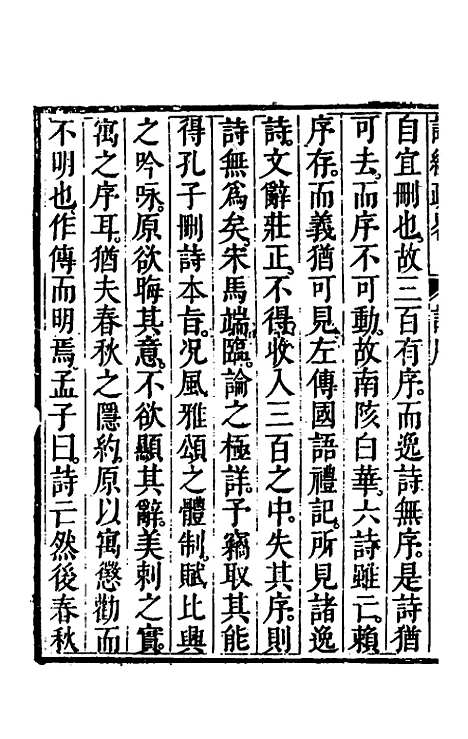 自宜刪也故三百有序。而逸詩無序。是詩猶
可去。而序不可動。故南陔白華。六詩雖亡。賴
序存。而義猶可見。左傳國語禮記。所見諸逸
詩。文辭莊正。不得收入三百之中。失其序。則
詩無爲矣。宋馬端臨。論之極詳。予竊取其能
得孔子刪詩本旨。况風雅頌之體制。賦比興
之吟咏。原欲晦其意。不欲顯其辭。美刺之實。
寓之序耳。猶夫春秋之隱約。原以寓懲勸而
不明也。作傳而明焉。孟子曰。詩亡然後春秋